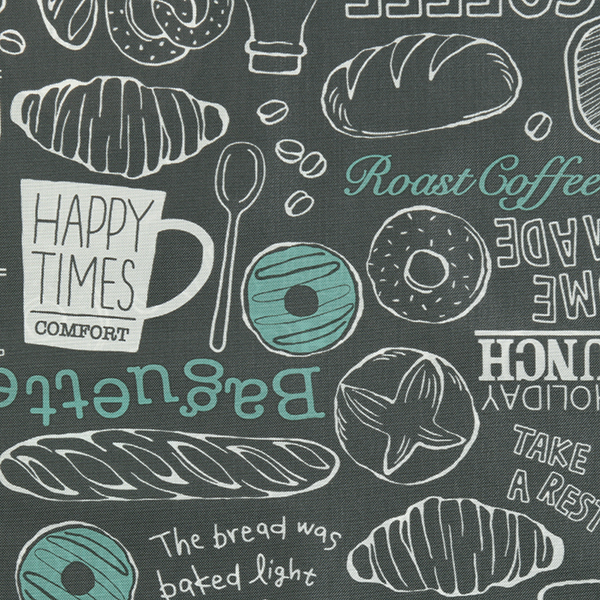 COFFEE
Roast Coffee
HAPPY
TIMES
COMFORT
MADE
LUNCH
HOLIDAY
Baguette
TAKE
A REST
The bread was
baked light